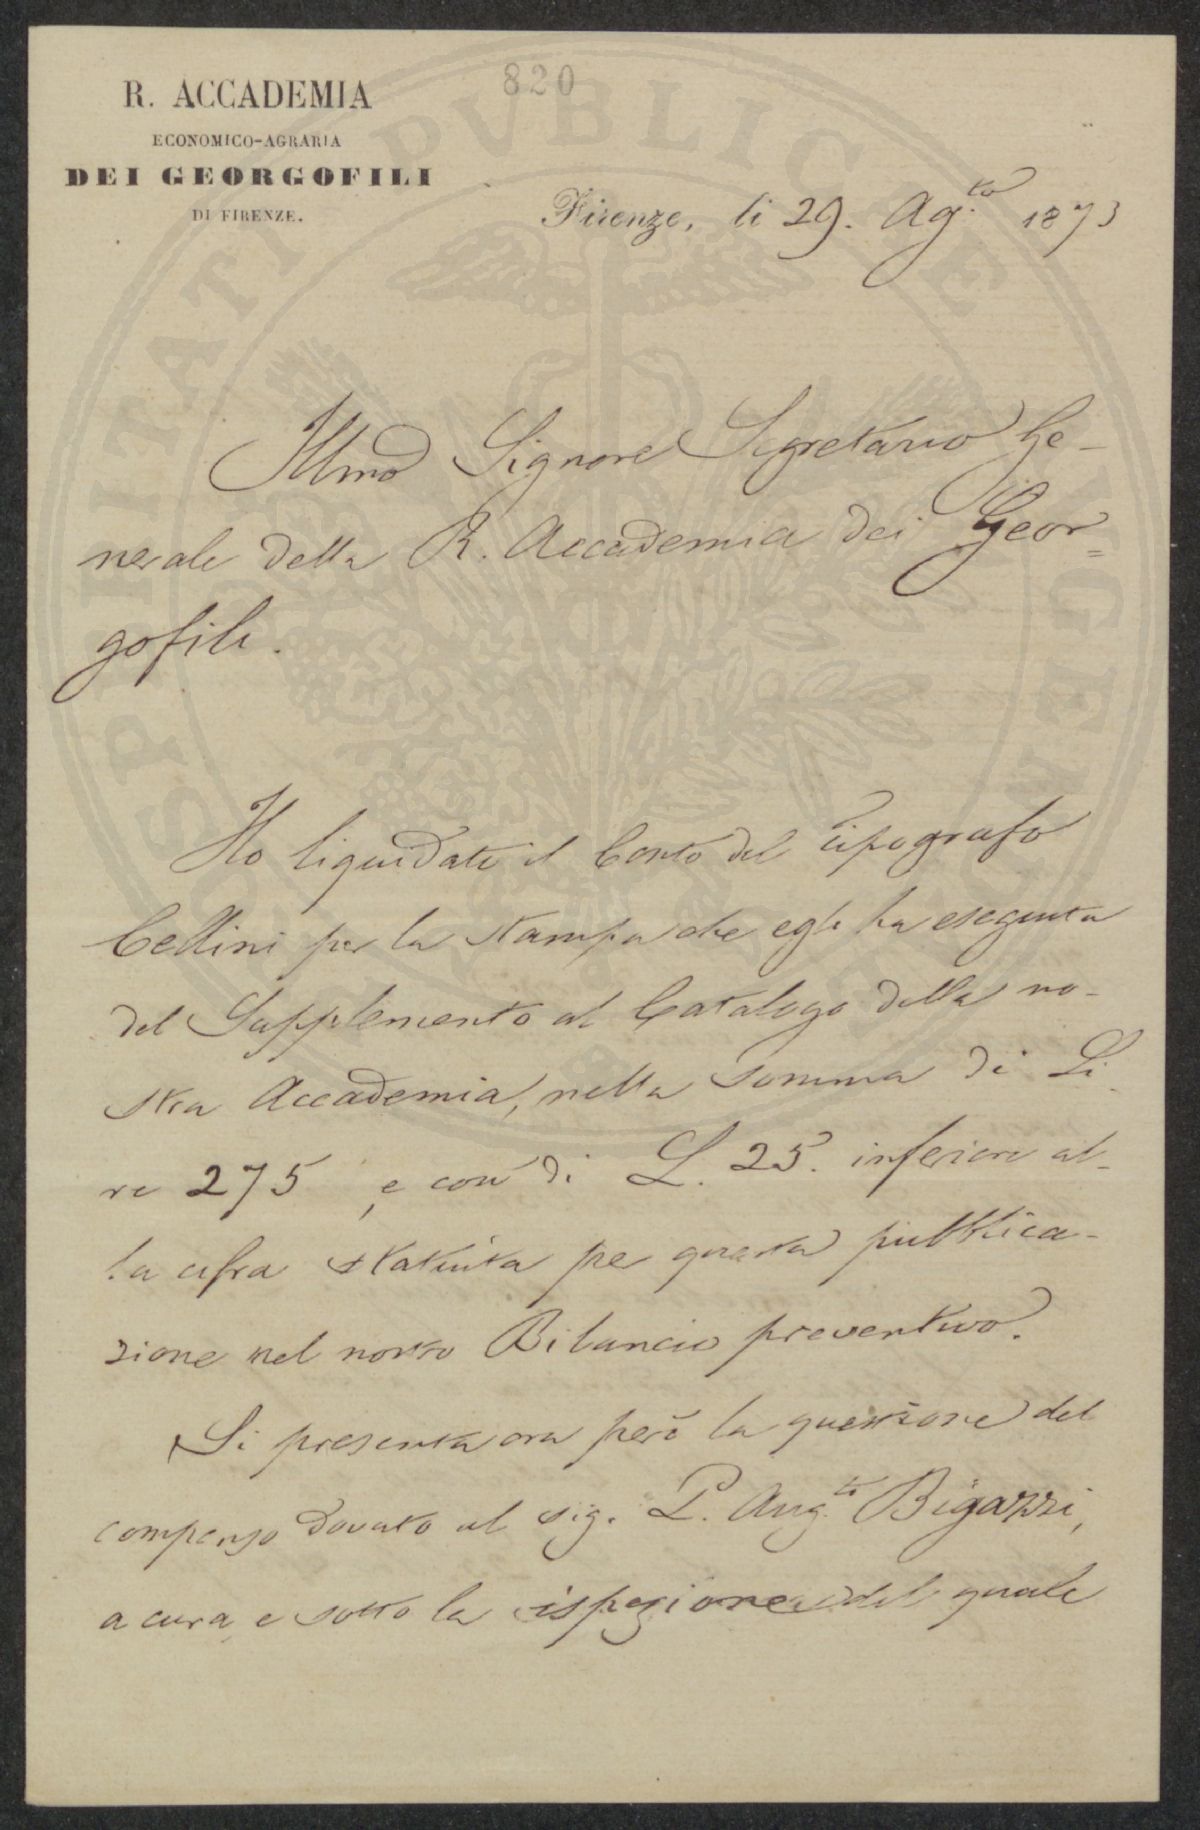 820
R. ACCADEMIA
ECONOMICO-AGRARIA
DEI GEORGOFILI
DI FIRENZE.
Firenze, li 29. Ag.to 1873
Illmo Signore Segretario Ge-
nerale della R. Accademia dei Geor=
gofili.
Ho liquidato il Conto del tipografo
Cellini per la stampa che egli ha eseguita
del Supplemento al Catalogo della no-
stra Accademia, nella somma di Li-
re 275, e così di L. 25. inferiore al-
la cifra statuita per questa pubblica-
zione nel nostro Bilancio preventivo.
Si presenta ora però la questione del
compenso dovuto al sig. P. Aug.to Bigazzi,
a cura e sotto la ispezione del quale